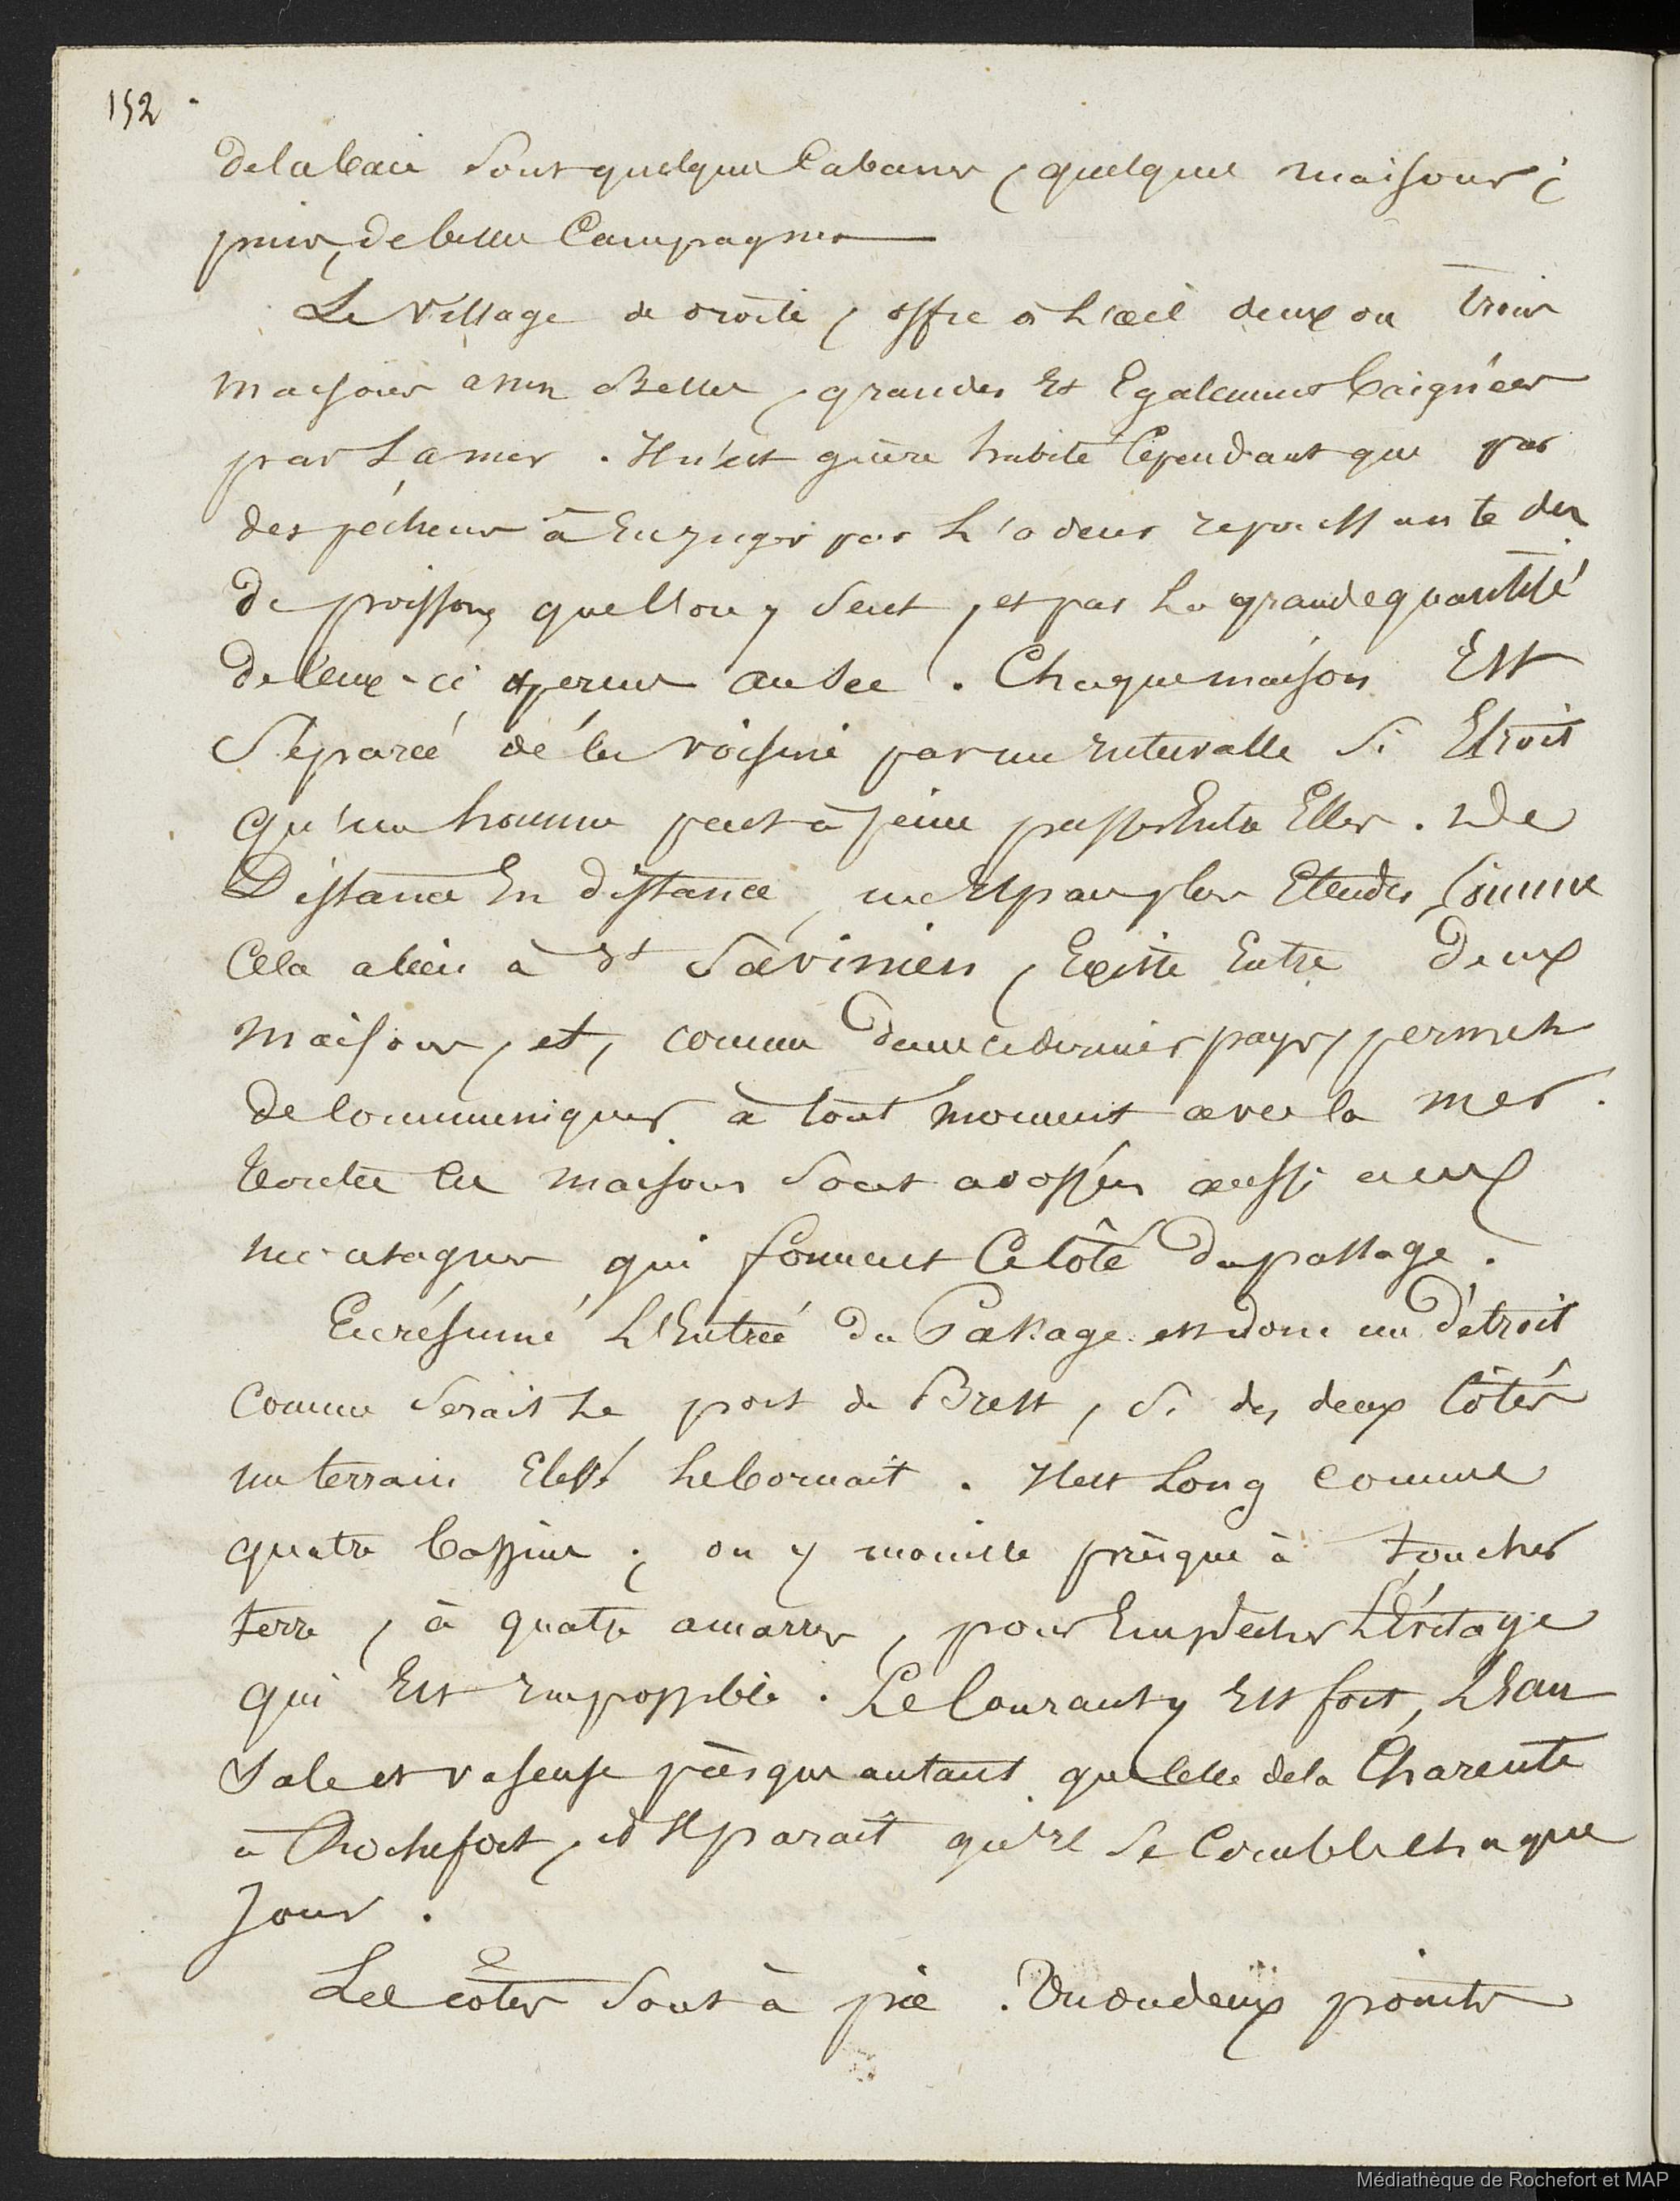 152
de la baie sont quelques Cabanes, quelques maisons ;
puis, de belles Campagnes
Le village de droite, offre à L'œil deux ou trois
maisons assez Belles, grandes Et Egalement baignées
par La mer . Il n'est guère habité Cependant que par
des pécheurs à En juger par L'odeur repoussante
de poissons que l'on y sent, et par La grande quantité
de Ceux-ci au sec . Chaque maison Est
Séparée de la voisine par un Intervalle si Etroit
qu'un homme peut à peine passer Entre Elles . De
Distance En distance, un Espace plus Etendu, Comme
Cela a lieu à St Savinien, Existe Entre Deux
maisons, et, comme dans ce dernier pays, permet
de Communiquer à tout moment avec la mer .
Toutes les maisons sont adossées aussi aux
montagnes qui forment Ce Côté du passage .
En résumé L'Entrée du Passage est donc un Détroit
Comme serait Le port de Brest, si des deux Côtés
un terrain Elevé Le bornait . Il est Long comme
quatre bassins ; on y mouille presque à toucher
terre, à quatre amarres, pour Empêcher L'Evitage
qui Est Impossible . Le Courant y Est fort, L'Eau
sale et vaseuse presque autant que Celle de la Charente
à Rochefort, et Il parait qu'Il se Comble chaque
Jour .
Les côtes sont à pic . Un ou deux points
Médiathèque de Rochefort et MAP